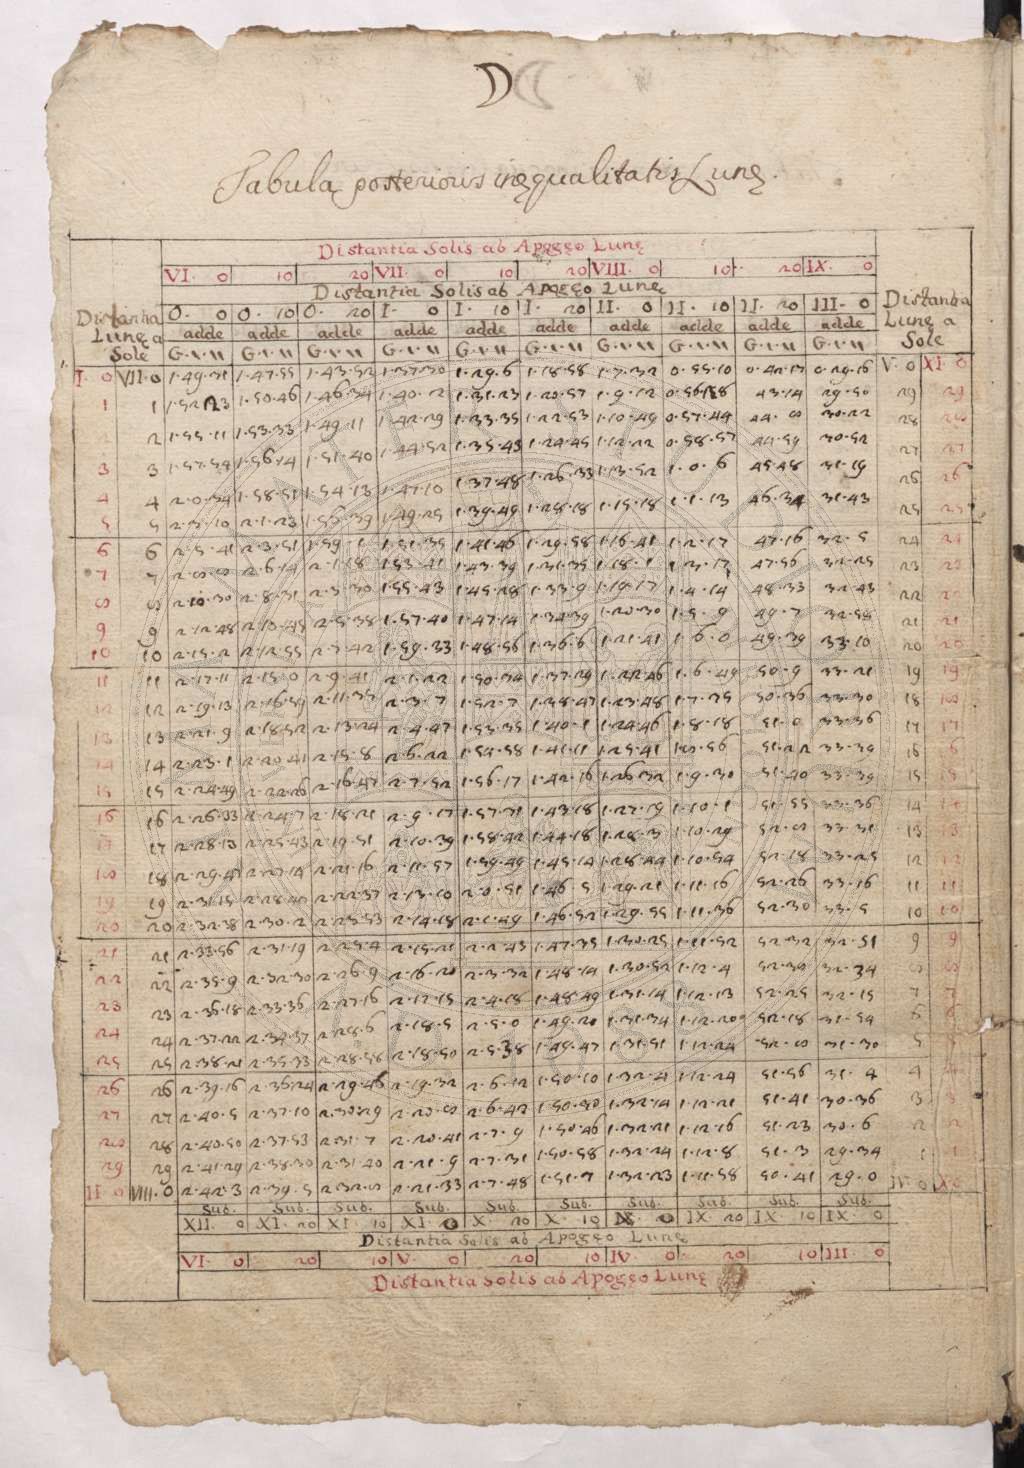 Tabula posterioris inęqualitatis Lunę.
Distantia Solis ab Apogęo Lunę
VI. 0 10 20 VII. 0 10 20 VIII. 0 10 20 IX. 0
Distantia Solis ab Apogęo Lunę
Distantia Lunę a Sole
O. 0 O. 10 O. 20 I. 0 I. 10 I. 20 II. 0 II. 10 II. 20 III. 0
Distantia Lunę a Sole
adde adde adde adde adde adde adde adde adde adde
I. 0 VII. 0 1.49.31 1.47.55 1.43.52 1.37.30 1.29.6 1.18.58 1.7.32 0.55.10 0.42.17 0.29.16 V. 0 XI. 0
1 1 1.50.46 1.46.34 1.40.2 1.31.23 1.20.57 1.9.12 43.14 29.50 29 29
2 2 1.55.11 1.53.33 1.49.11 1.42.29 1.33.35 1.22.53 1.10.49 0.57.44 44.0 30.22 28 28
3 3 1.57.54 1.56.14 1.51.40 1.44.52 1.35.43 1.24.45 1.12.22 0.58.57 44.59 30.52 27 27
4 4 2.0.34 1.58.51 1.54.13 1.47.10 1.37.48 1.26.33 1.13.52 1.0.6 45.48 31.19 26 26
5 5 2.3.10 2.1.23 1.56.39 1.49.25 1.39.49 1.28.18 1.15.18 1.1.13 46.34 31.43 25 25
6 6 2.5.41 2.3.51 1.59.1 1.51.35 1.41.46 1.29.58 1.16.41 1.2.17 47.16 32.5 24 24
7 7 2.8.8 2.6.14 2.1.18 1.53.41 1.43.39 1.31.35 1.18.1 1.3.17 47.56 32.25 23 23
8 8 2.10.30 2.8.31 2.3.30 1.55.43 1.45.28 1.33.9 1.19.17 1.4.14 48.33 32.43 22 22
9 9 2.12.48 2.10.45 2.5.38 1.57.40 1.47.14 1.34.39 1.20.30 1.5.9 49.7 32.58 21 21
10 10 2.15.2 2.12.55 2.7.42 1.59.33 1.48.56 1.36.6 1.21.41 1.6.0 49.39 33.10 20 20
11 11 2.17.11 2.15.0 2.9.41 2.1.22 1.50.34 1.37.29 1.22.46 1.6.49 50.9 33.21 19 19
12 12 2.19.13 2.16.59 2.11.35 2.3.7 1.52.7 1.38.47 1.23.48 1.7.35 50.36 33.30 18 18
13 13 2.21.9 2.18.52 2.13.24 2.4.47 1.53.35 1.40.1 1.24.46 1.8.18 51.0 33.36 17 17
14 14 2.23.1 2.20.41 2.15.8 2.6.22 1.54.58 1.41.11 1.25.41 51.22 33.39 16 16
15 15 2.24.49 2.22.26 2.16.47 2.7.52 1.56.17 1.42.16 1.26.32 1.9.30 51.40 33.39 15 15
16 16 2.26.33 2.24.7 2.18.21 2.9.17 1.57.31 1.43.18 1.27.19 1.10.1 51.55 33.36 14 14
17 17 2.28.13 2.25.43 2.19.51 2.10.39 1.58.42 1.44.18 1.28.3 1.10.29 52.8 33.31 13 13
18 18 2.29.47 2.27.14 2.21.16 2.11.57 1.59.49 1.45.14 1.28.44 1.10.54 52.18 33.25 12 12
19 19 2.31.15 2.28.40 2.22.37 2.13.10 2.0.51 1.46.5 1.29.21 1.11.16 52.26 33.16 11 11
20 20 2.32.38 2.30.2 2.23.53 2.14.18 2.1.49 1.46.52 1.29.55 1.11.36 52.30 33.5 10 10
21 21 2.33.56 2.31.19 2.25.4 2.15.21 2.2.43 1.47.35 1.30.25 1.11.52 52.32 32.51 9 9
22 22 2.35.9 2.32.30 2.26.9 2.16.20 2.3.32 1.48.14 1.30.52 1.12.4 52.30 32.34 8 8
23 23 2.36.18 2.33.36 2.27.16 2.17.15 2.4.18 1.48.49 1.31.14 1.12.13 52.25 32.15 7 7
24 24 2.37.22 2.34.37 2.28.6 2.18.5 2.5.0 1.49.20 1.31.34 1.12.20 52.18 31.54 6 6
25 25 2.38.21 2.35.33 2.28.58 2.18.50 2.5.38 1.49.47 1.31.51 1.12.24 52.8 31.30 5 5
26 26 2.39.16 2.36.24 2.29.46 2.19.32 2.6.12 1.50.10 1.32.4 1.12.24 51.56 31.4 4 4
27 27 2.40.5 2.37.10 2.30.29 2.20.8 2.6.42 1.50.30 1.32.14 1.12.21 51.41 30.36 3 3
28 28 2.40.50 2.37.53 2.31.7 2.20.41 2.7.9 1.50.46 1.32.21 1.12.16 51.23 30.6 2 2
29 29 2.41.29 2.38.30 2.31.40 2.21.9 2.7.31 1.50.58 1.32.24 1.12.8 51.3 29.34 1 1
II. 0 VIII. 0 2.42.3 2.39.5 2.32.8 2.21.33 2.7.48 1.51.7 1.32.23 1.11.58 50.41 29.0 IV. 0 X. 0
Sub. Sub. Sub. Sub. Sub. Sub. Sub. Sub. Sub. Sub.
XII. 0 XI. 20 XI. 10 XI. 0 X. 20 X. 10 X. 0 IX. 20 IX. 10 IX. 0
Distantia Solis ab Apogęo Lunę
VI. 0 20 10 V. 0 20 10 IV. 0 20 10 III. 0
Distantia Solis ab Apogęo Lunę